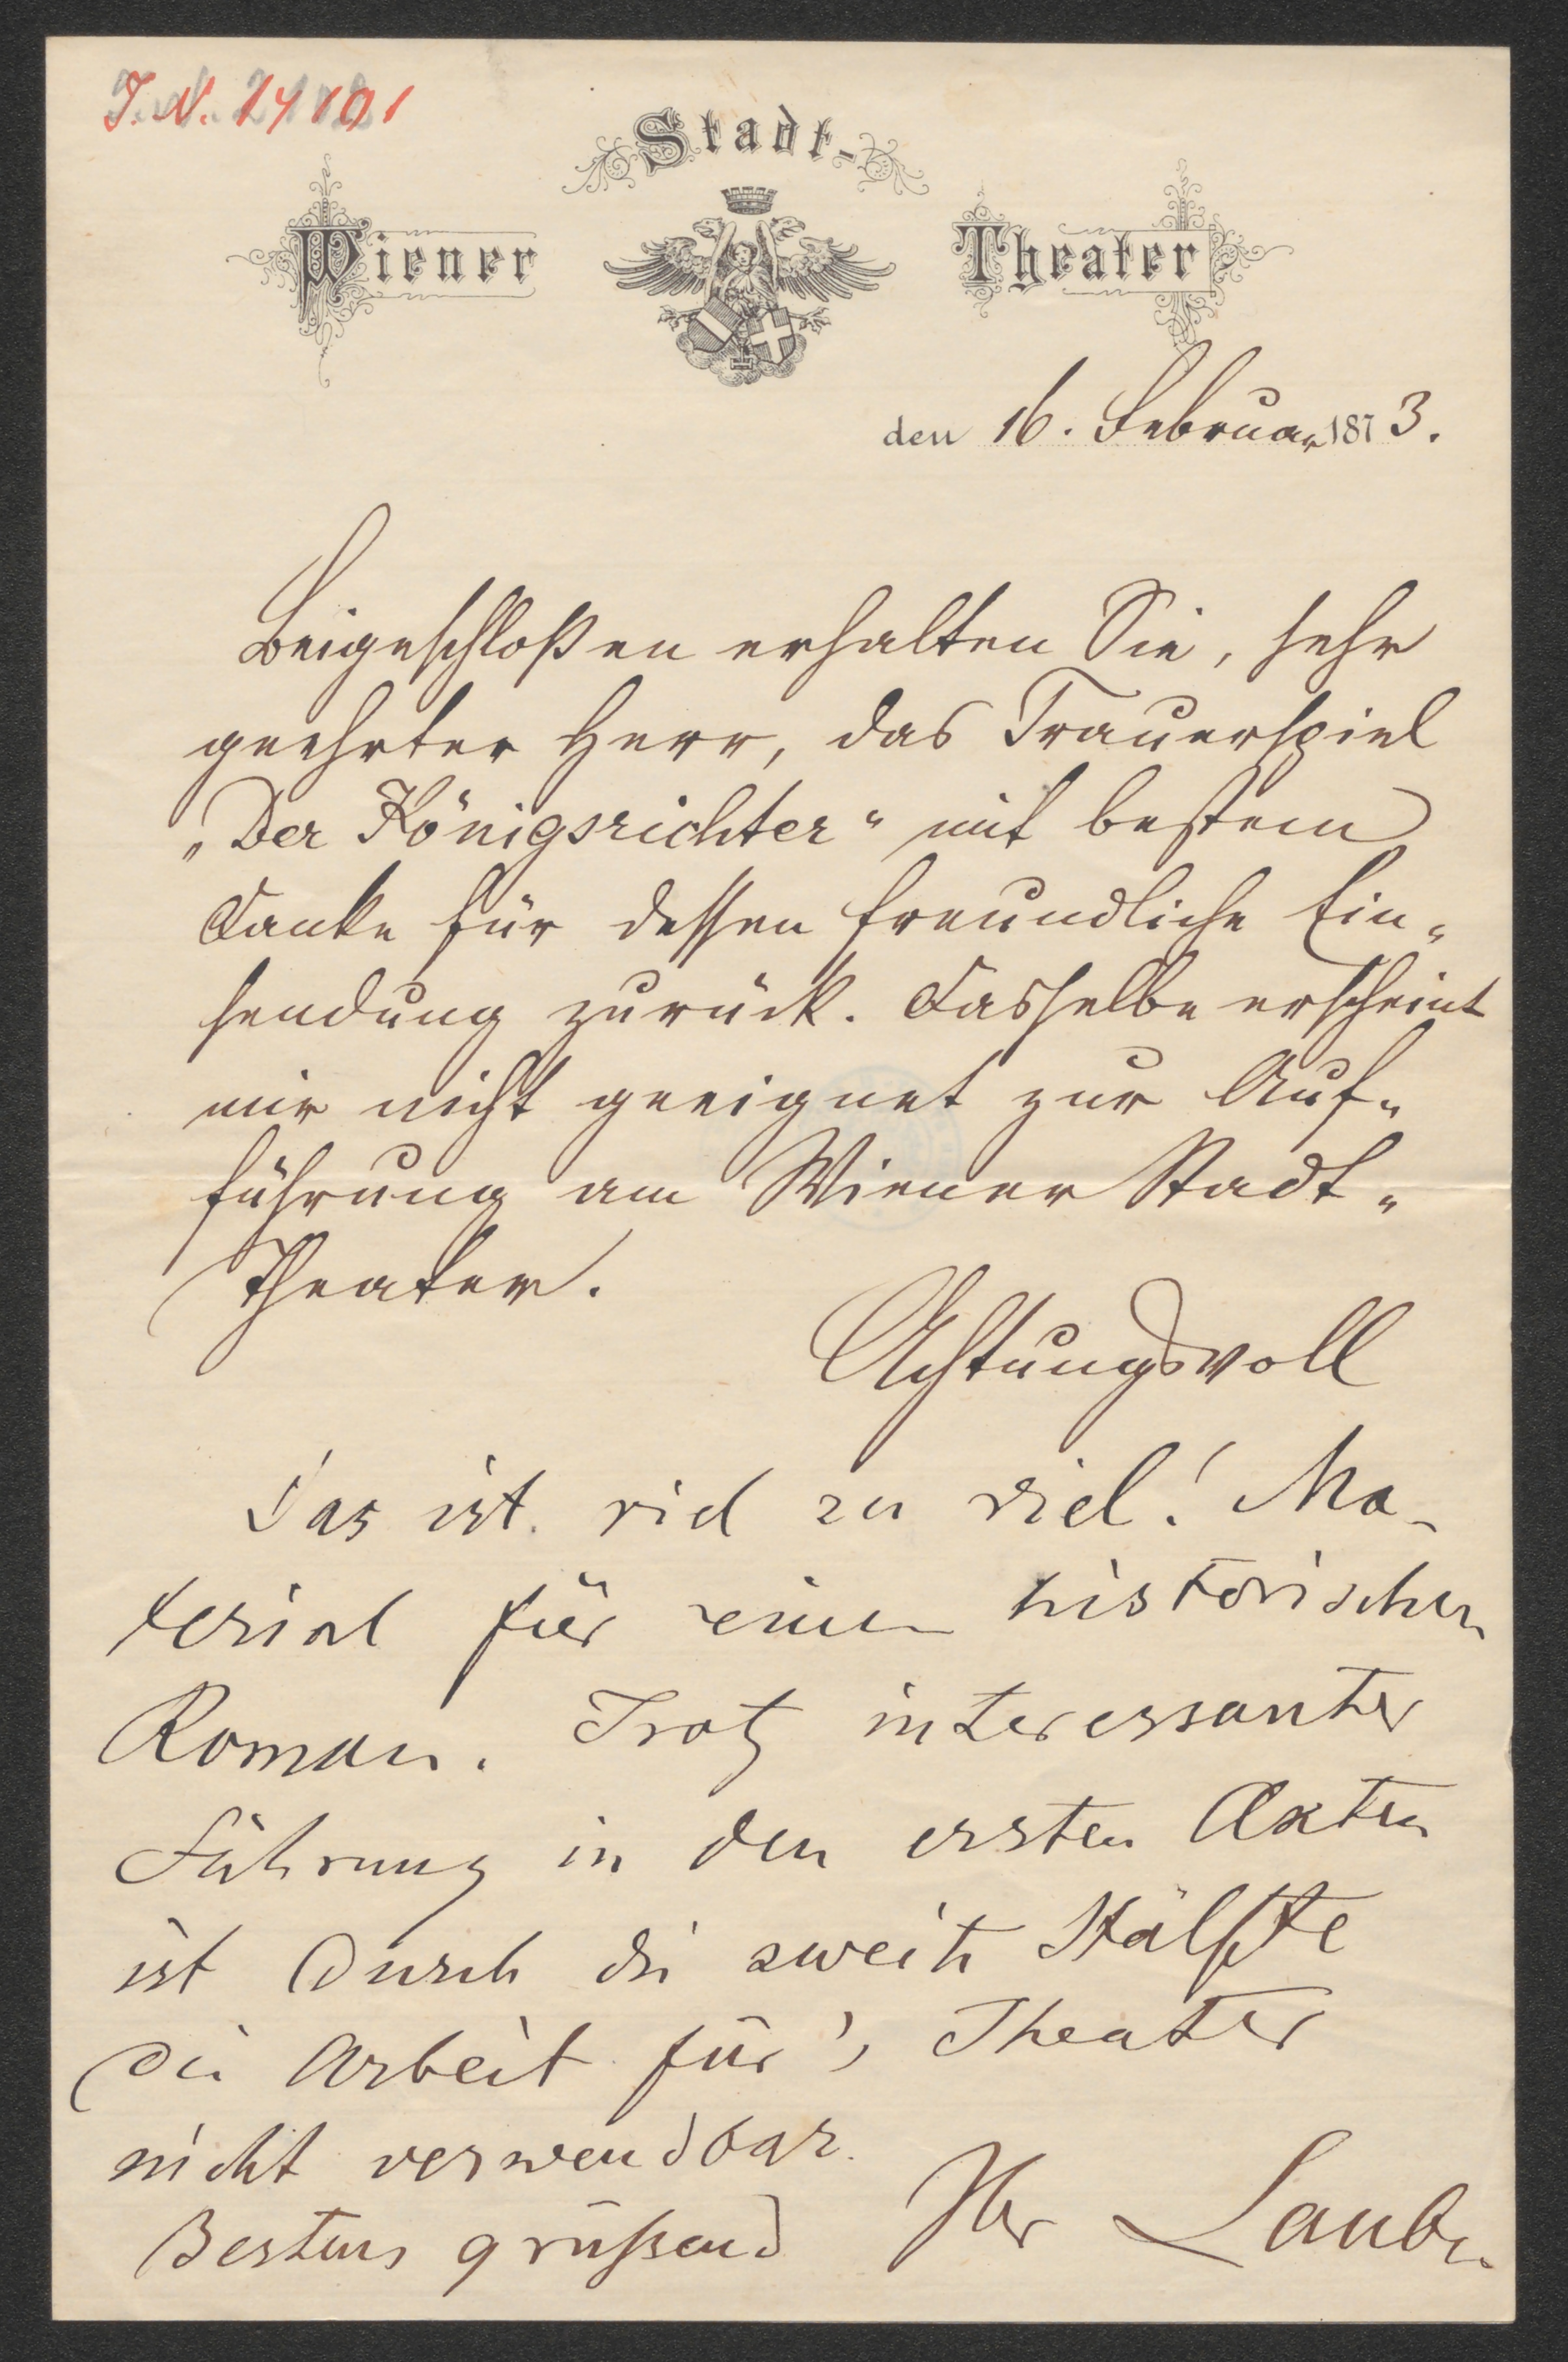 J. N. 24101
Stadt-
Wiener
Theater
den 16. Februar 1873.
Beigeschloßen erhalten Sie, sehr
geehrter Herr, das Trauerspiel
„Der Königsrichter“ mit bestem
Danke für dessen freundliche Ein-
sendung zurück. Dasselbe erscheint
mir nicht geeignet zur Auf-
führung am Wiener Stadt-
Theater.
Achtungsvoll
Das ist viel zu viel! Ma-
terial für einen historischen
Roman. Trotz interessanter
Führung in den ersten Akten
ist durch die zweite Hälfte
die Arbeit für's Theater
nicht verwendbar.
Bestens grüßend Ihr Laube.